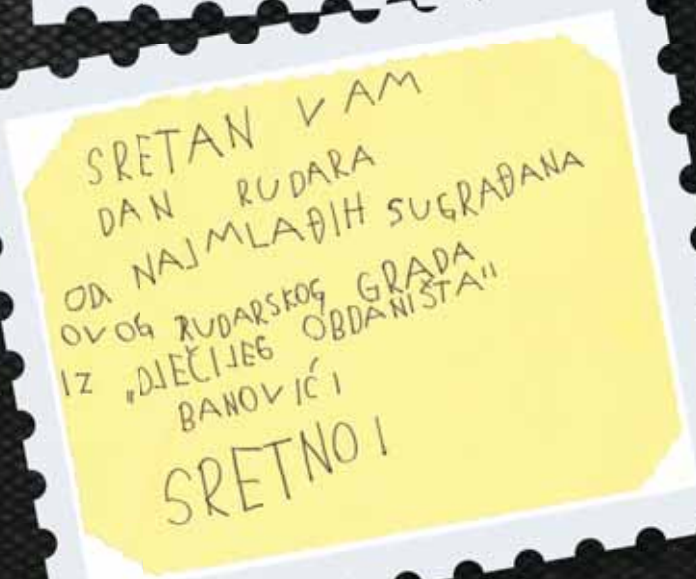 SRETAN VAM
DAN RUDARA
OD NAJMLAĐIH SUGRAĐANA
OVOG RUDARSKOG GRADA
IZ „DJEČIJEG OBDANIŠTA"
BANOVIĆI
SRETNO!